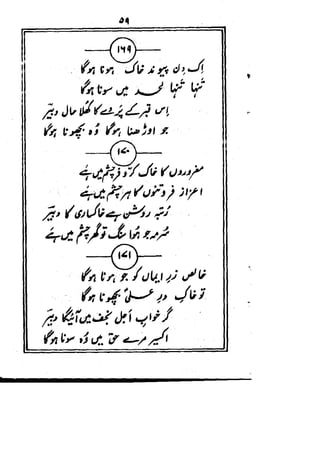 ۵۹
۱۶۹
اک دن پیوند خاک ہونا ہوگا
تنہا تنہا لحد میں سونا ہوگا
اس قبر کے پردے کا کھلا حال دبیر
جو اوڑھنا ہوگا وہ بچھونا ہوگا
۱۷۰
مغروروں کا خاک کروفر چشم میں ہے
اعزاز فروتنوں کا ہر چشم میں ہے
رتبہ روشن ہے خاکساری کا دبیر
سرمہ جو ہوا سنگ تو گھر چشم میں ہے
۱۷۱
خالص زر ایماں کو جو ہونا ہوگا
تو خاک در علی بچھونا ہوگا
گر خواب اجل نجف میں آئیگا دبیر
اکسیر مرے حق میں وہ سونا ہوگا